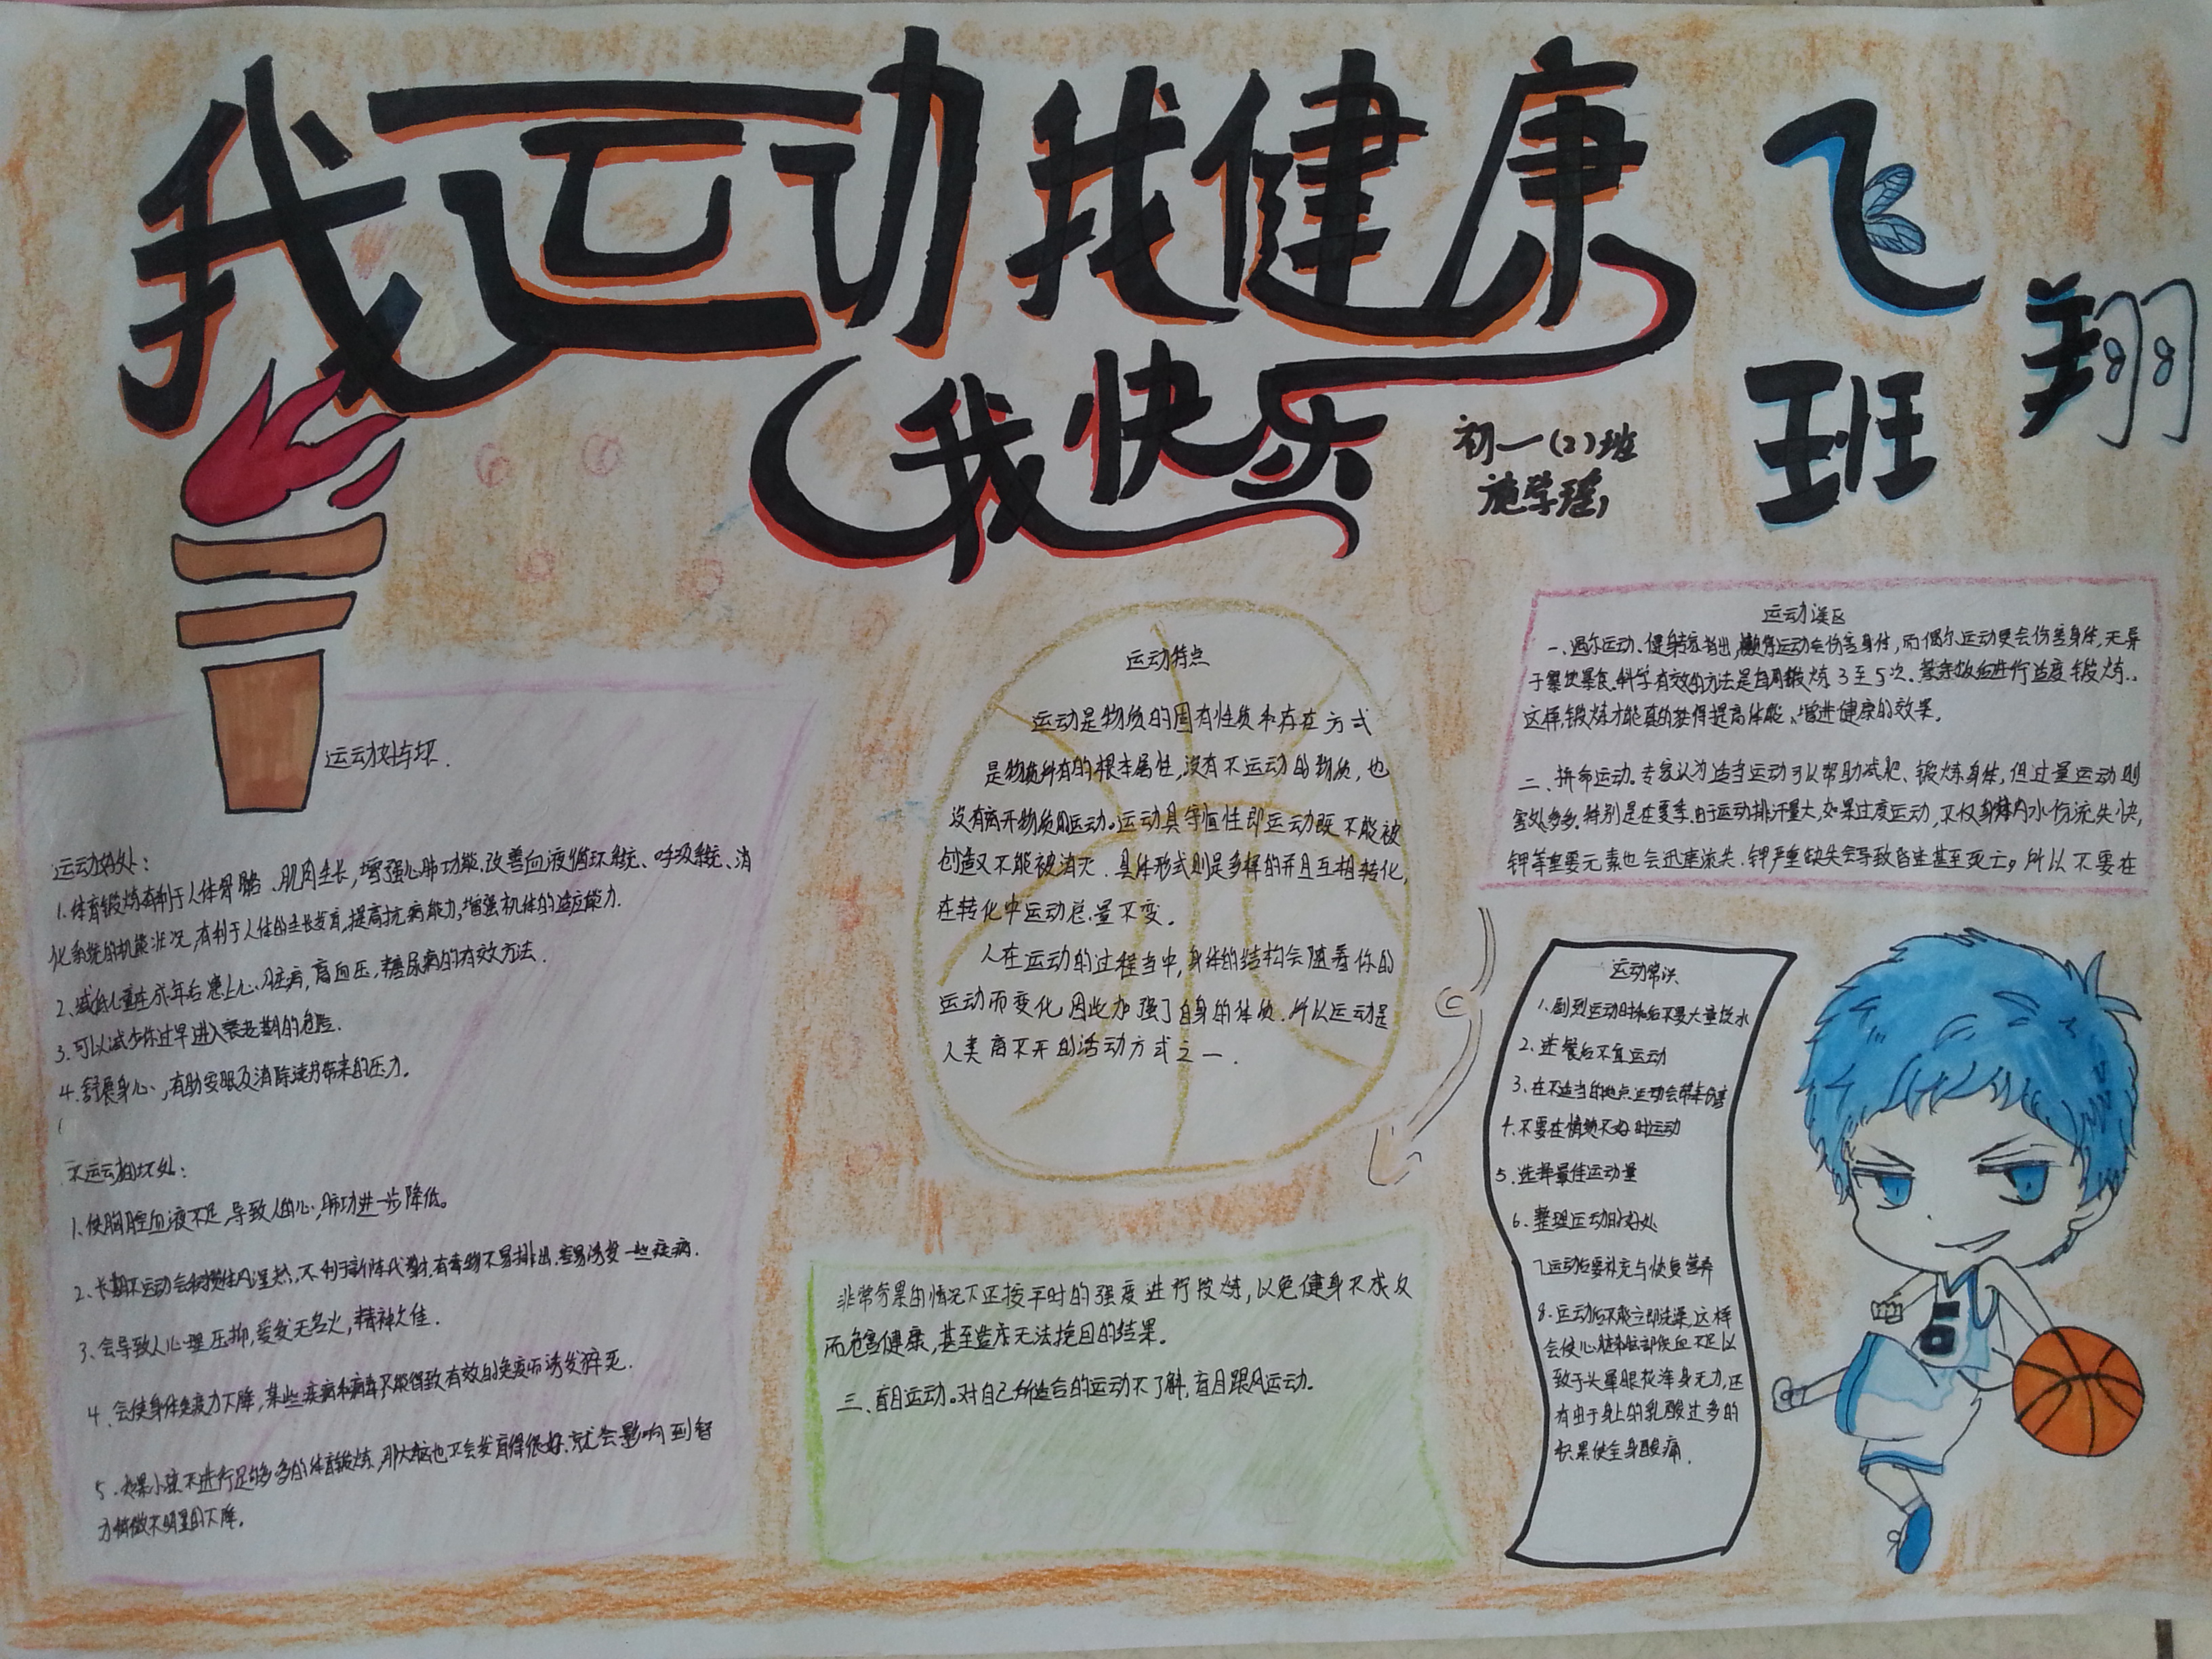 我运动我健康
我快乐
飞翔
班
初一(2)班
施学瑶
运动好与坏.
运动好处:
1.体育锻炼有利于人体骨骼、肌肉生长,增强心肺功能,改善血液循环系统、呼吸系统、消
化系统的机能状况,有利于人体的生长发育,提高抗病能力,增强机体的适应能力.
2.减低儿童在成年后患上心脏病,高血压,糖尿病的有效方法.
3.可以减少你过早进入衰老期的危险.
4.舒展身心,有助安眠及消除读书带来的压力.
不运动的坏处:
1.使胸腔血液不足,导致人的心,肺功进一步降低。
2.长期不运动会积攒体内湿热,不利于新陈代谢,有毒物不易排出,容易诱发一些疾病.
3.会导致人心理压抑,爱发无名火,精神欠佳.
4.会使身体免疫力下降,某些疾病和病毒不能得致有效的免疫而诱发猝死.
5.如果小孩不进行足够多的体育锻炼,那大脑也不会发育得很好,就会影响到智
力稍微不明显的下降。
运动特点
运动是物质的固有性质和存在方式
是物质所有的根本属性,没有不运动的物质,也
没有离开物质的运动。运动具守恒性即运动既不能被
创造又不能被消灭.具体形式则是多样的并且互相转化,
在转化中运动总量不变.
人在运动的过程当中,身体的结构会随着你的
运动而变化,因此加强了自身的体质.所以运动是
人类离不开的活动方式之一.
运动误区
一、偶尔运动、健身专家指出,懒得运动会伤害身体,而偶尔运动更会伤害身体,无异
于暴饮暴食.科学有效的方法是每周锻炼3至5次.茶余饭后进行适度锻炼.
这样,锻炼才能真的获得提高体能、增进健康的效果.
二、拼命运动。专家认为适当运动可以帮助减肥、锻炼身体,但过量运动则
害处多多.特别是在夏季,由于运动排汗量大,如果过度运动,不仅身体内水份流失快,
钾等重要元素也会迅速流失.钾严重缺失会导致昏迷甚至死亡,所以不要在
非常劳累的情况下还按平时的强度进行锻炼,以免健身不成反
而危害健康,甚至造成无法挽回的结果。
三、盲目运动。对自己所适合的运动不了解,盲目跟风运动.
运动常识
1.剧烈运动时和后不要大量饮水
2.进餐后不宜运动
3.在不适当的地点运动会带来伤害
4.不要在情绪不好时运动
5.选择最佳运动量
6.整理运动的好处
7.运动后要补充与恢复营养
8.运动后不能立即洗澡,这样
会使心脏和脑部供血不足以
致于头晕眼花浑身无力,还
有由于身上的乳酸过多的
积累使全身酸痛.
5